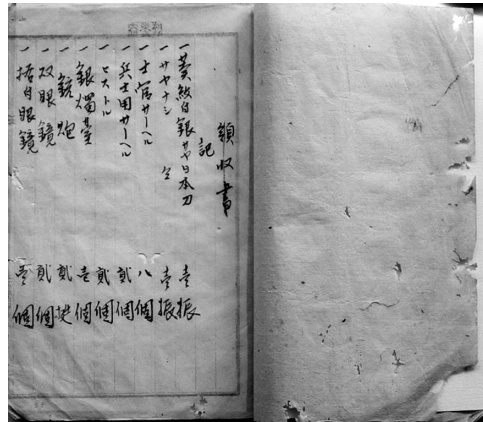 領収書
記
一 葵紋白銀サヤ日本刀 壹振
一 サヤナシ 仝 壹振
一 士官サーベル 八個
一 兵士用サーベル 貳個
一 ピストル 貳個
一 銀燭臺 壹個
一 銃砲 貳挺
一 双眼鏡 貳個
一 眼鏡 壹個